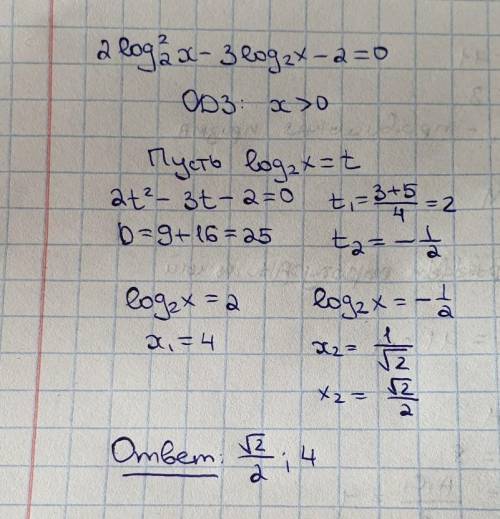 2log₂²x - 3log₂x - 2 = 0
ОДЗ: x > 0
Пусть log₂x = t
2t² - 3t - 2 = 0
D = 9 + 16 = 25
t₁ = (3+5)/4 = 2
t₂ = -1/2
log₂x = 2
x₁ = 4
log₂x = -1/2
x₂ = 1/√2
x₂ = √2/2
Ответ: √2/2 ; 4